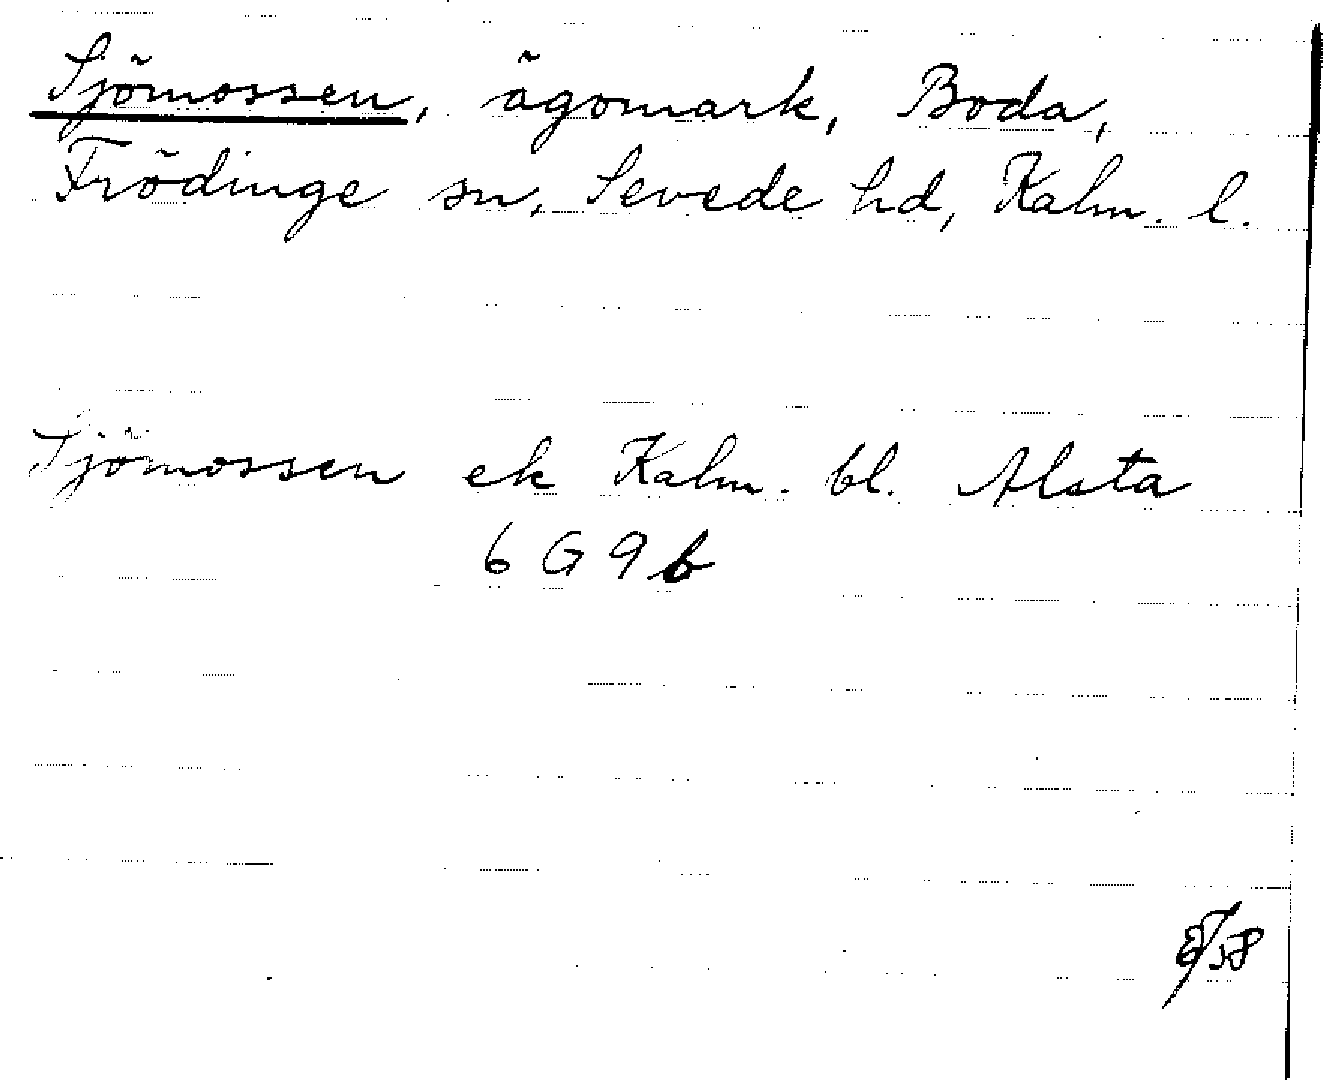 Sjömossen, ägomark, Boda,
Frödinge sn, Sevede hd, Kalm. l.
Sjömossen ek Kalm. bl. Alsta
6 G 9 b